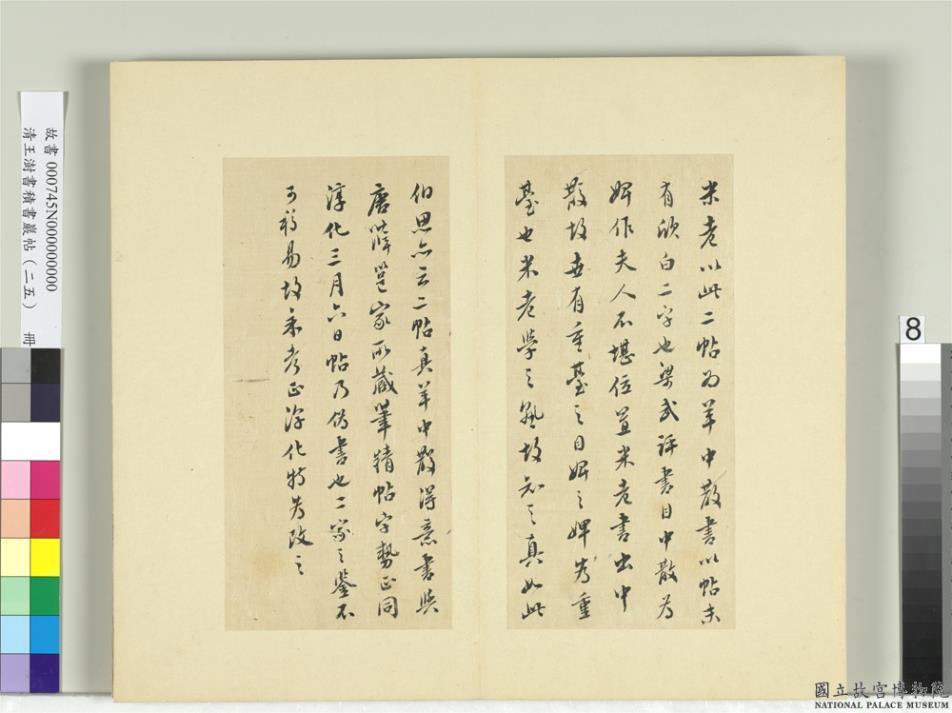 米老以此二帖為羊中散書以帖末
有欣白二字也梁武評書目中散為
婢作夫人不堪位置米老書出中
散故世有重臺之目婢之婢為重
臺也米老學之熟故知之真如此
伯思亦云二帖真羊中散得意書與
唐滕邕家所藏筆精帖字勢正同
淳化三月六日帖乃偽書也二家之鑒不
可移易故余考正淳化特為改之
故書 000745N000000000
清王澍書積書巖帖(二五) 冊
8
國立故宮博物院
NATIONAL PALACE MUSEUM